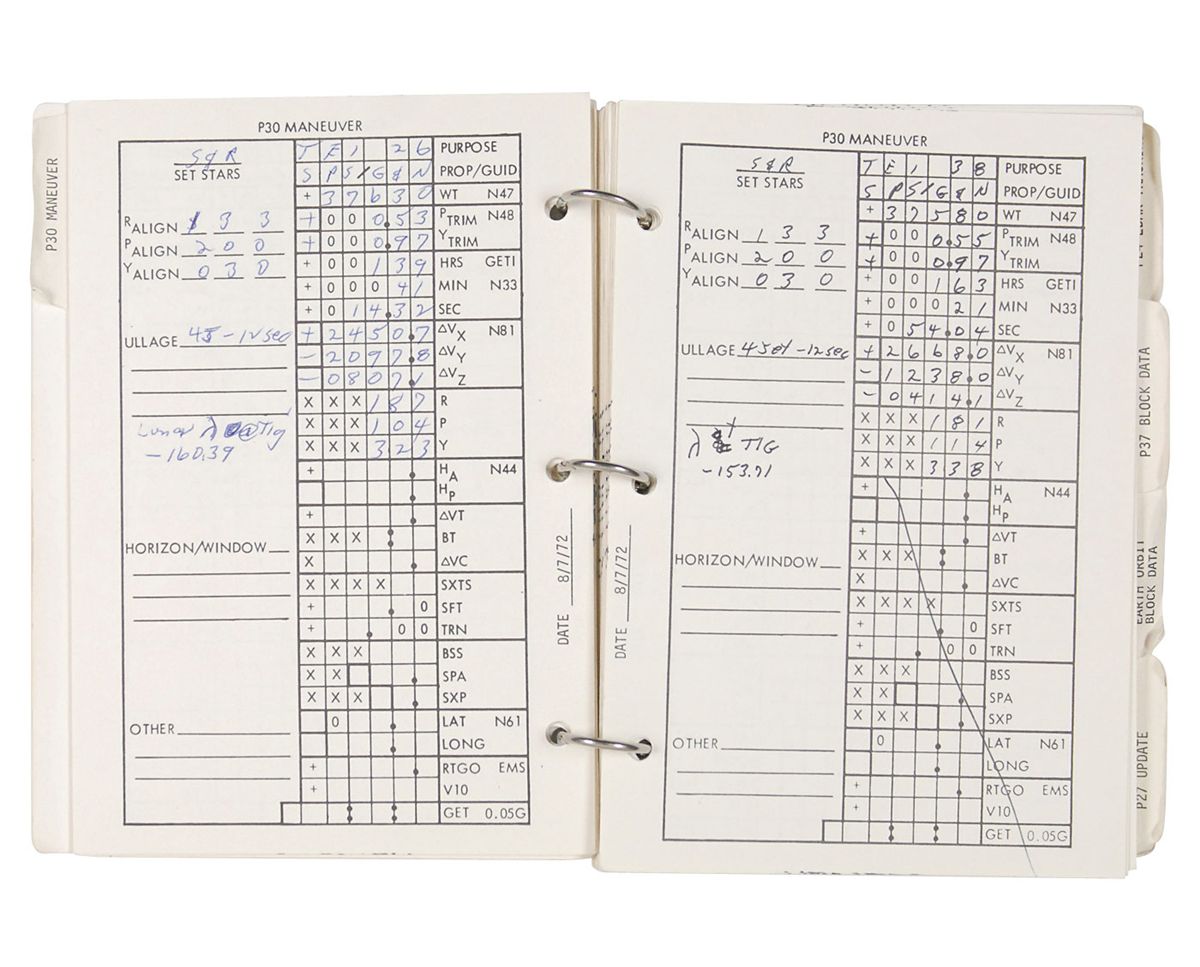 P30 MANEUVER
P30 MANEUVER
S&R
SET STARS
T E 1 26 PURPOSE
S PS/G&N PROP/GUID
+ 3 7 6 3 0 WT N47
R ALIGN 1 3 3
P ALIGN 2 0 0
Y ALIGN 0 3 0
+ 0 0 0.5 3 P TRIM N48
+ 0 0 0.9 7 Y TRIM
+ 0 0 1 3 9 HRS GETI
+ 0 0 0 4 1 MIN N33
+ 0 1 4.3 2 SEC
ULLAGE 4J - 12 sec
+ 2 4 5 0.7 ΔVX N81
- 2 0 9 7.8 ΔVY
- 0 8 0 7.1 ΔVZ
X X X 1 8 7 R
X X X 1 0 4 P
X X X 3 2 3 Y
Lunar λ @ TIG
-160.39
+ . HA N44
. HP
+ . ΔVT
X X X . BT
X . ΔVC
HORIZON/WINDOW
X X X X SXTS
+ . 0 SFT
+ . 0 0 TRN
X X X BSS
X X . SPA
X X X . SXP
OTHER
0 . LAT N61
. LONG
+ . RTGO EMS
+ V10
GET 0.05G
DATE 8/7/72
DATE 8/7/72
P30 MANEUVER
S&R
SET STARS
T E 1 38 PURPOSE
S PS/G&N PROP/GUID
+ 3 7 5 8 0 WT N47
R ALIGN 1 3 3
P ALIGN 2 0 0
Y ALIGN 0 3 0
+ 0 0 0.5 5 P TRIM N48
+ 0 0 0.9 7 Y TRIM
+ 0 0 1 6 3 HRS GETI
+ 0 0 0 2 1 MIN N33
+ 0 5 4.0 4 SEC
ULLAGE 4 jet - 12 sec
+ 2 6 6 8.0 ΔVX N81
- 1 2 3 8.0 ΔVY
- 0 4 1 4.1 ΔVZ
X X X 1 8 1 R
X X X 1 1 4 P
X X X 3 3 8 Y
λ TIG
-153.71
+ . HA N44
. HP
+ . ΔVT
X X X . BT
X . ΔVC
HORIZON/WINDOW
X X X X SXTS
+ . 0 SFT
+ . 0 0 TRN
X X X BSS
X X . SPA
X X X . SXP
OTHER
0 . LAT N61
. LONG
+ . RTGO EMS
+ V10
GET 0.05G
P37 BLOCK DATA
EARTH ORBIT
BLOCK DATA
P27 UPDATE